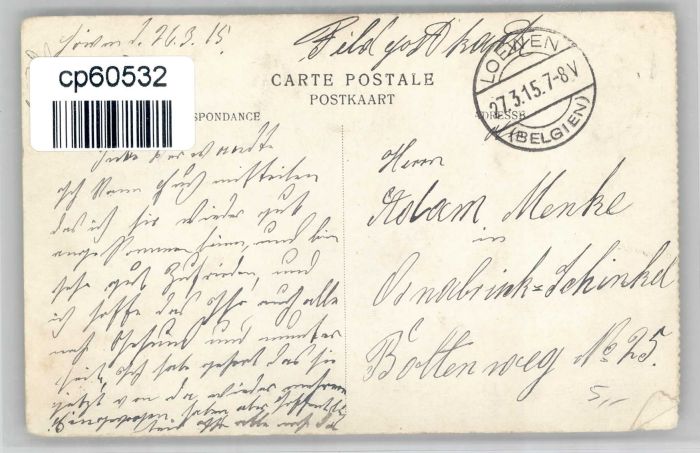 Löwen d. 26.3.15.
Feldpostkarte
cp60532
CARTE POSTALE
POSTKAART
SPONDANCE
ADRESSE
LOEWEN
27.3.15.7-8V
(BELGIEN)
Herrn
Adam Menke
in
Osnabrück=Schinkel
Bottenweg No 25.
5,-
Liebe Verwandte
Ich kann Euch mitteilen
das ich hir wieder gut
angekommen bin, und bin
sehr gut zufrieden, und
ich hoffe das Ihr auch alle
noch Gesund und munter
seid, Ich habe gehört das sie
jetzt von da wieder mehrere
Eingezogen haben aber hoffentlich
alle noch da